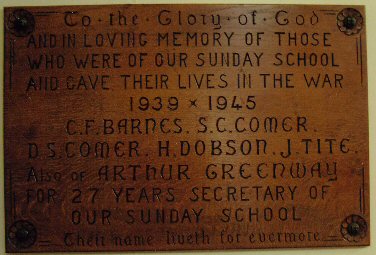 To · the · Glory · of · God
AND IN LOVING MEMORY OF THOSE
WHO WERE OF OUR SUNDAY SCHOOL
AND GAVE THEIR LIVES IN THE WAR
1939 × 1945
C.F. BARNES. S.C. COMER.
D.S. COMER. H. DOBSON. J. TITE.
Also of ARTHUR GREENWAY
FOR 27 YEARS SECRETARY OF
OUR SUNDAY SCHOOL
Their name liveth for evermore